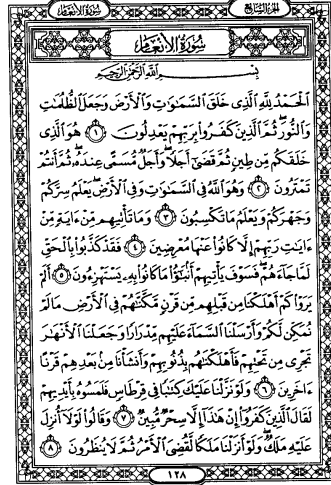 الجزء السابع
سورة الأنعام
سُورَةُ الأَنْعَامِ
بِسْمِ اللَّهِ الرَّحْمَٰنِ الرَّحِيمِ
ٱلْحَمْدُ لِلَّهِ ٱلَّذِى خَلَقَ ٱلسَّمَٰوَٰتِ وَٱلْأَرْضَ وَجَعَلَ ٱلظُّلُمَٰتِ
وَٱلنُّورَ ثُمَّ ٱلَّذِينَ كَفَرُوا۟ بِرَبِّهِمْ يَعْدِلُونَ ١ هُوَ ٱلَّذِى
خَلَقَكُم مِّن طِينٍ ثُمَّ قَضَىٰٓ أَجَلًا وَأَجَلٌ مُّسَمًّى عِندَهُۥ ثُمَّ أَنتُمْ
تَمْتَرُونَ ٢ وَهُوَ ٱللَّهُ فِى ٱلسَّمَٰوَٰتِ وَفِى ٱلْأَرْضِ يَعْلَمُ سِرَّكُمْ
وَجَهْرَكُمْ وَيَعْلَمُ مَا تَكْسِبُونَ ٣ وَمَا تَأْتِيهِم مِّنْ ءَايَةٍ مِّنْ
ءَايَٰتِ رَبِّهِمْ إِلَّا كَانُوا۟ عَنْهَا مُعْرِضِينَ ٤ فَقَدْ كَذَّبُوا۟ بِٱلْحَقِّ
لَمَّا جَآءَهُمْ فَسَوْفَ يَأْتِيهِمْ أَنۢبَٰٓؤُا۟ مَا كَانُوا۟ بِهِۦ يَسْتَهْزِءُونَ ٥ أَلَمْ
يَرَوْا۟ كَمْ أَهْلَكْنَا مِن قَبْلِهِم مِّن قَرْنٍ مَّكَّنَّٰهُمْ فِى ٱلْأَرْضِ مَا لَمْ
نُمَكِّن لَّكُمْ وَأَرْسَلْنَا ٱلسَّمَآءَ عَلَيْهِم مِّدْرَارًا وَجَعَلْنَا ٱلْأَنْهَٰرَ
تَجْرِى مِن تَحْتِهِمْ فَأَهْلَكْنَٰهُم بِذُنُوبِهِمْ وَأَنشَأْنَا مِنۢ بَعْدِهِمْ قَرْنًا
ءَاخَرِينَ ٦ وَلَوْ نَزَّلْنَا عَلَيْكَ كِتَٰبًا فِى قِرْطَاسٍ فَلَمَسُوهُ بِأَيْدِيهِمْ
لَقَالَ ٱلَّذِينَ كَفَرُوٓا۟ إِنْ هَٰذَآ إِلَّا سِحْرٌ مُّبِينٌ ٧ وَقَالُوا۟ لَوْلَآ أُنزِلَ
عَلَيْهِ مَلَكٌ وَلَوْ أَنزَلْنَا مَلَكًا لَّقُضِىَ ٱلْأَمْرُ ثُمَّ لَا يُنظَرُونَ ٨
١٢٨